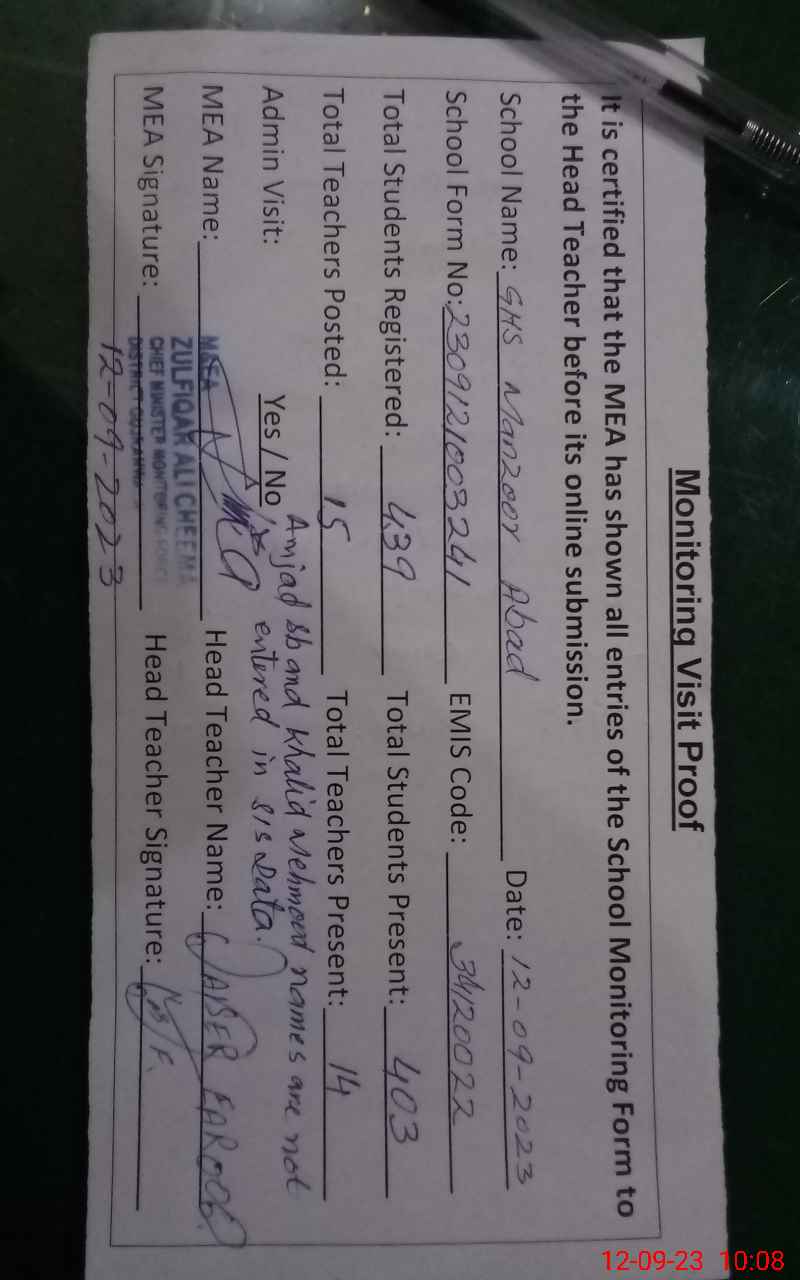 Monitoring Visit Proof
It is certified that the MEA has shown all entries of the School Monitoring Form to
the Head Teacher before its online submission.
School Name: GHS Manzoor Abad Date: 12-09-2023
School Form No: 2309121003241 EMIS Code: 34120022
Total Students Registered: 439 Total Students Present: 403
Total Teachers Posted: 15 Total Teachers Present: 14
Amjad sb and Khalid Mehmood names are not
Admin Visit: Yes / No entered in SIS data.
MEA Name: Head Teacher Name: QAISER FAROOQ
M&EA
ZULFIQAR ALI CHEEMA
CHIEF MINISTER MONITORING FORCE
MEA Signature: Head Teacher Signature:
DISTRICT
12-09-2023
12-09-23 10:08